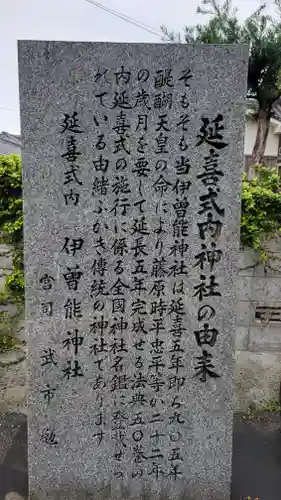 延喜式内神社の由来
そもそも当伊曽能神社は延喜五年即ち九〇五年
醍醐天皇の命により藤原時忠平等が二十二年
の歳月を要して延長五年完成せる法典五〇巻の
内延喜式の施行に係る全国神社名鑑に登載せら
れている由緒ふかき傳統の神社であります
延喜式内 伊曽能神社
宮司 武市